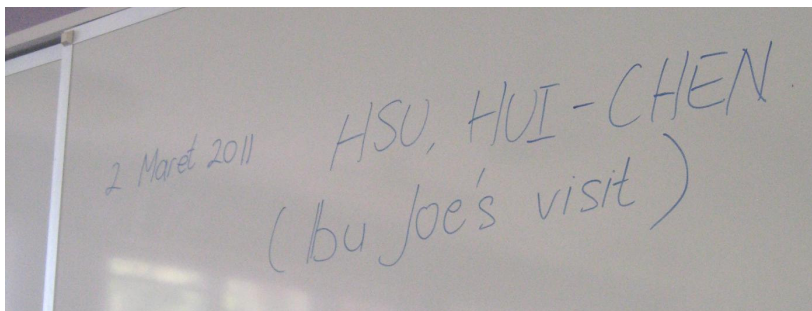 2 Maret 2011 HSU, HUI-CHEN
(Ibu Joe's visit)